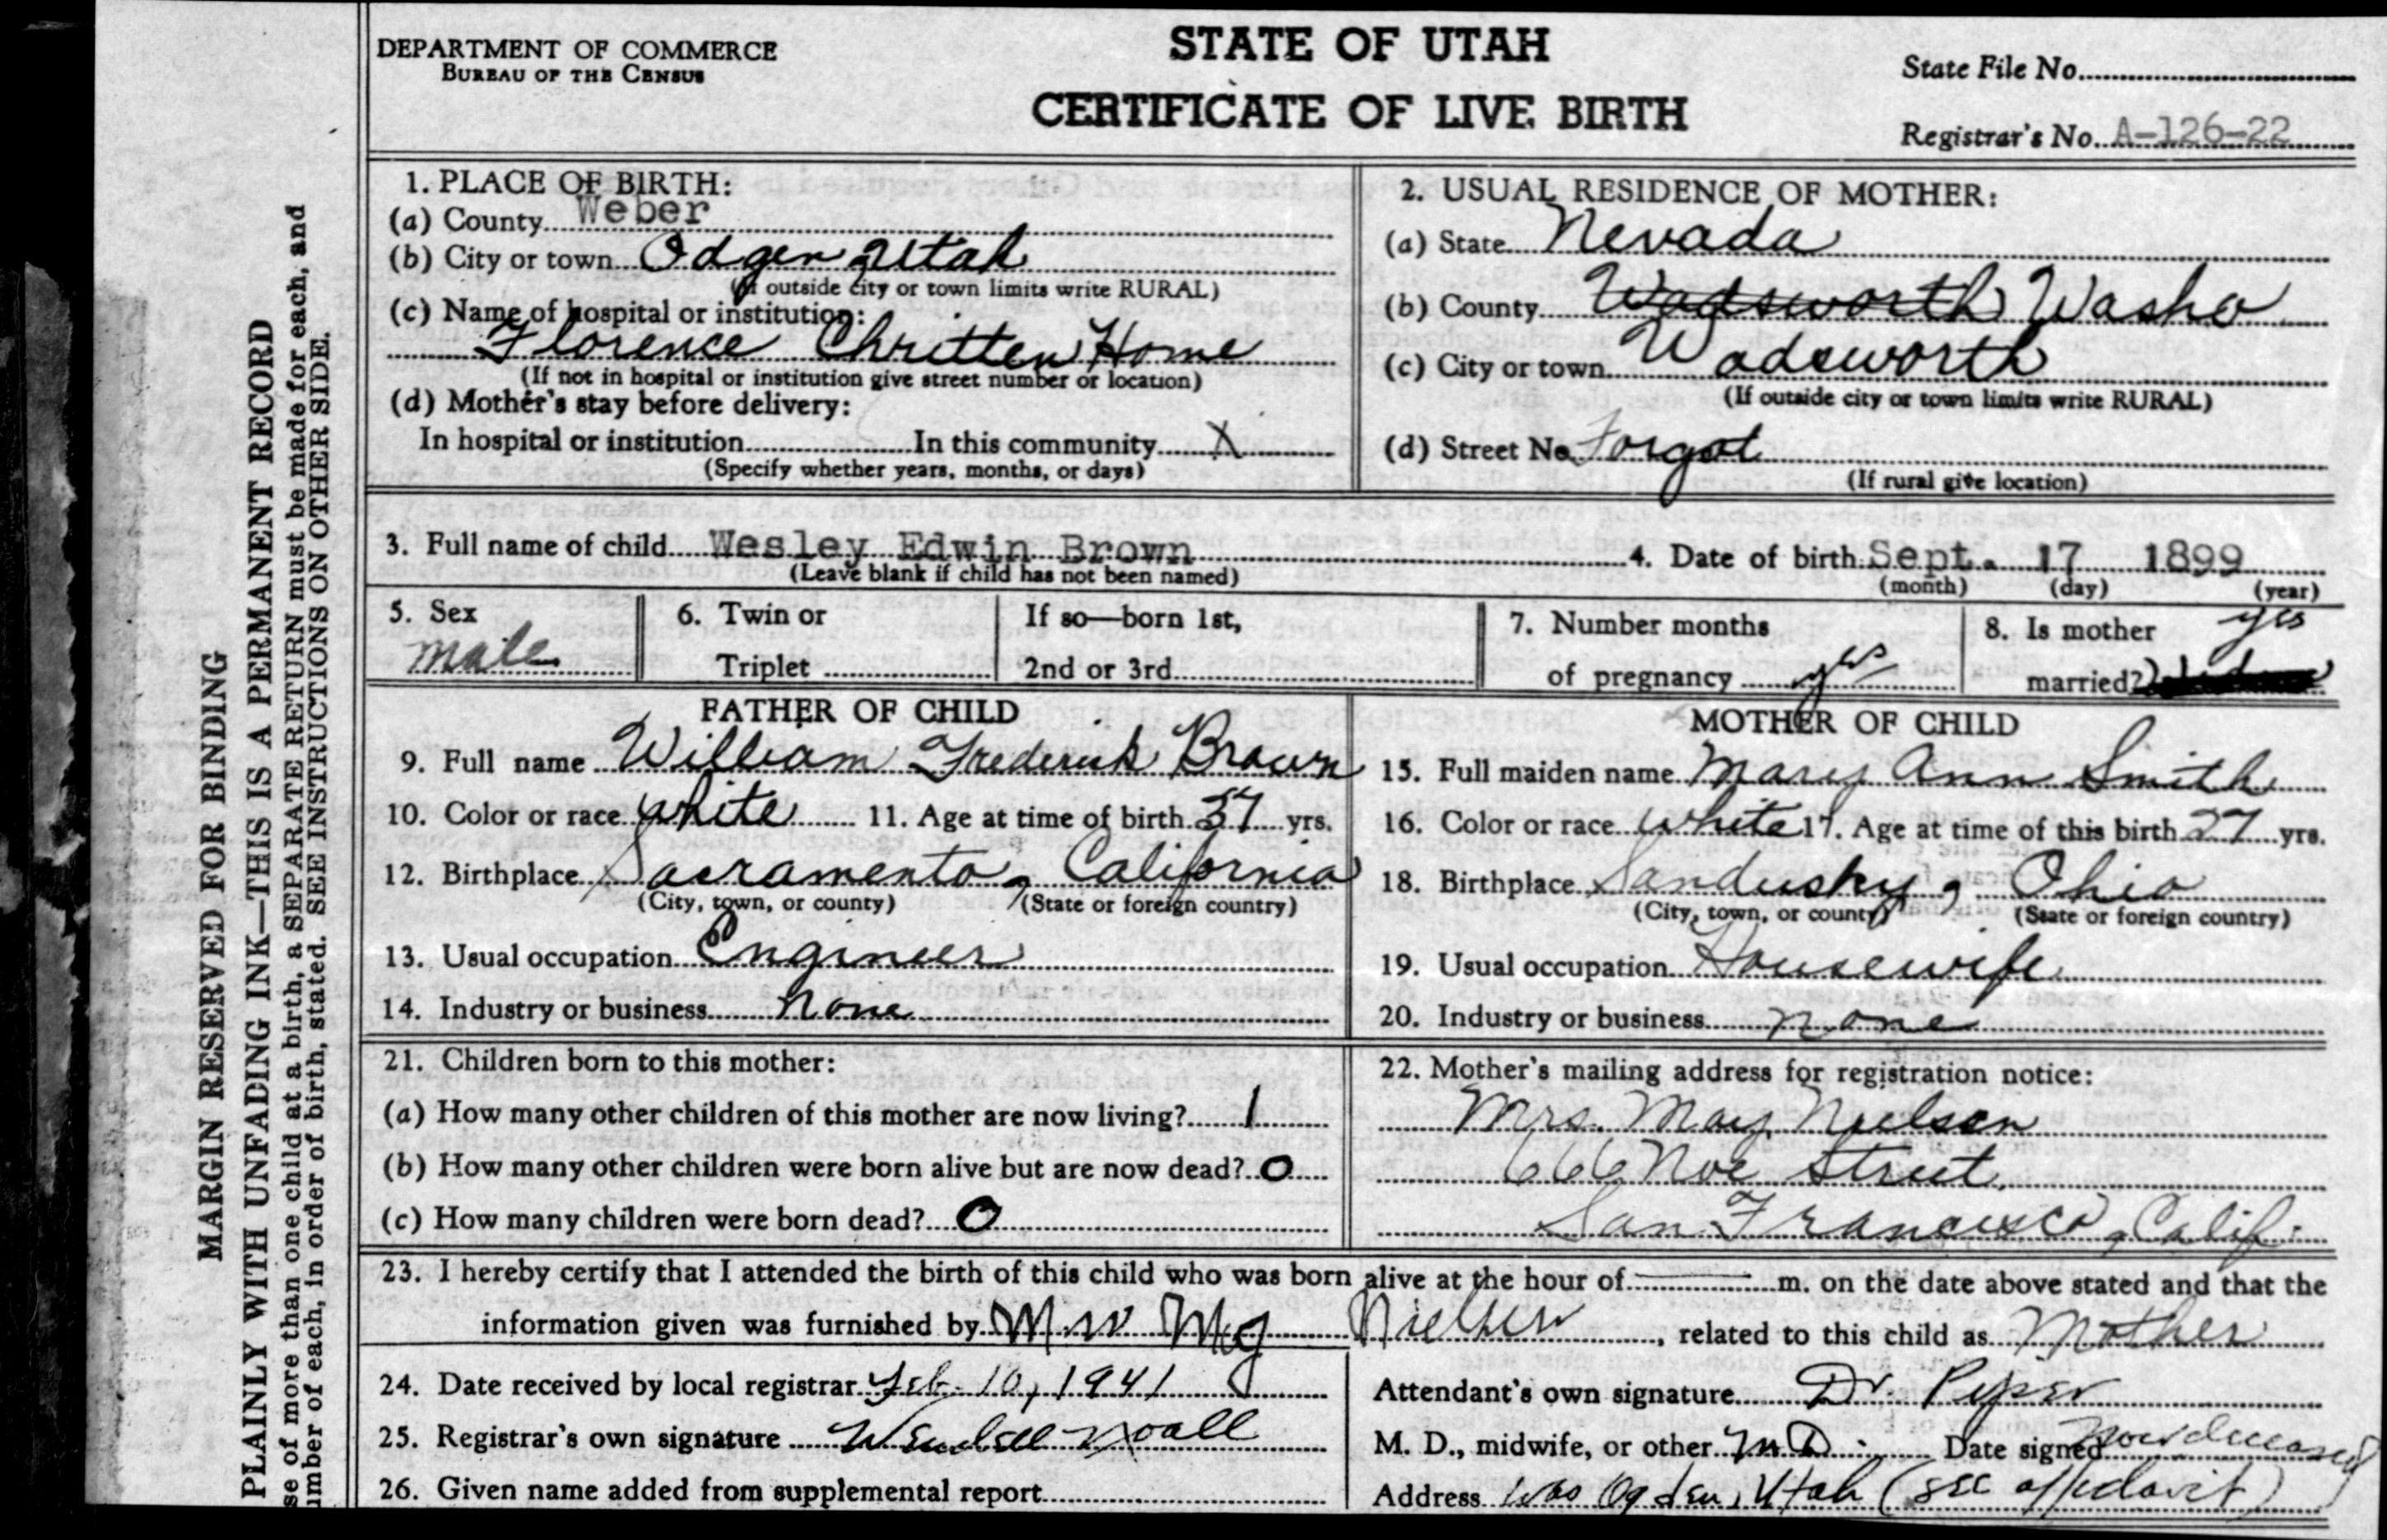 DEPARTMENT OF COMMERCE
BUREAU OF THE CENSUS
STATE OF UTAH
CERTIFICATE OF LIVE BIRTH
State File No.
Registrar's No. A-126-22
MARGIN RESERVED FOR BINDING
PLAINLY WITH UNFADING INK—THIS IS A PERMANENT RECORD
se of more than one child at a birth, a SEPARATE RETURN must be made for each, and
umber of each, in order of birth, stated. SEE INSTRUCTIONS ON OTHER SIDE.
1. PLACE OF BIRTH:
(a) County Weber
(b) City or town Odgen Utah
(If outside city or town limits write RURAL)
(c) Name of hospital or institution:
Florence Chritten Home
(If not in hospital or institution give street number or location)
(d) Mother's stay before delivery:
In hospital or institution In this community X
(Specify whether years, months, or days)
2. USUAL RESIDENCE OF MOTHER:
(a) State Nevada
(b) County Wadsworth Washo
(c) City or town Wadsworth
(If outside city or town limits write RURAL)
(d) Street No. Forgot
(If rural give location)
3. Full name of child Wesley Edwin Brown
(Leave blank if child has not been named)
4. Date of birth Sept. 17 1899
(month) (day) (year)
5. Sex male
6. Twin or Triplet
If so—born 1st, 2nd or 3rd
7. Number months of pregnancy yes
8. Is mother married? yes
FATHER OF CHILD
9. Full name William Frederick Brown
10. Color or race white 11. Age at time of birth 37 yrs.
12. Birthplace Sacramento, California
(City, town, or county) (State or foreign country)
13. Usual occupation Engineer
14. Industry or business none
MOTHER OF CHILD
15. Full maiden name Mary Ann Smith
16. Color or race white 17. Age at time of this birth 27 yrs.
18. Birthplace Sandusky, Ohio
(City, town, or county) (State or foreign country)
19. Usual occupation Housewife
20. Industry or business none
21. Children born to this mother:
(a) How many other children of this mother are now living? 1
(b) How many other children were born alive but are now dead? 0
(c) How many children were born dead? 0
22. Mother's mailing address for registration notice:
Mrs. May Nielsen
666 Noe Street,
San Francisco, Calif.
23. I hereby certify that I attended the birth of this child who was born alive at the hour of m. on the date above stated and that the
information given was furnished by Mrs May Nielsen, related to this child as Mother
24. Date received by local registrar Feb. 10, 1941
25. Registrar's own signature Wendell Noall
26. Given name added from supplemental report
Attendant's own signature Dr. Piper
M. D., midwife, or other M.D. Date signed now deceased
Address was Ogden, Utah (see affidavit)